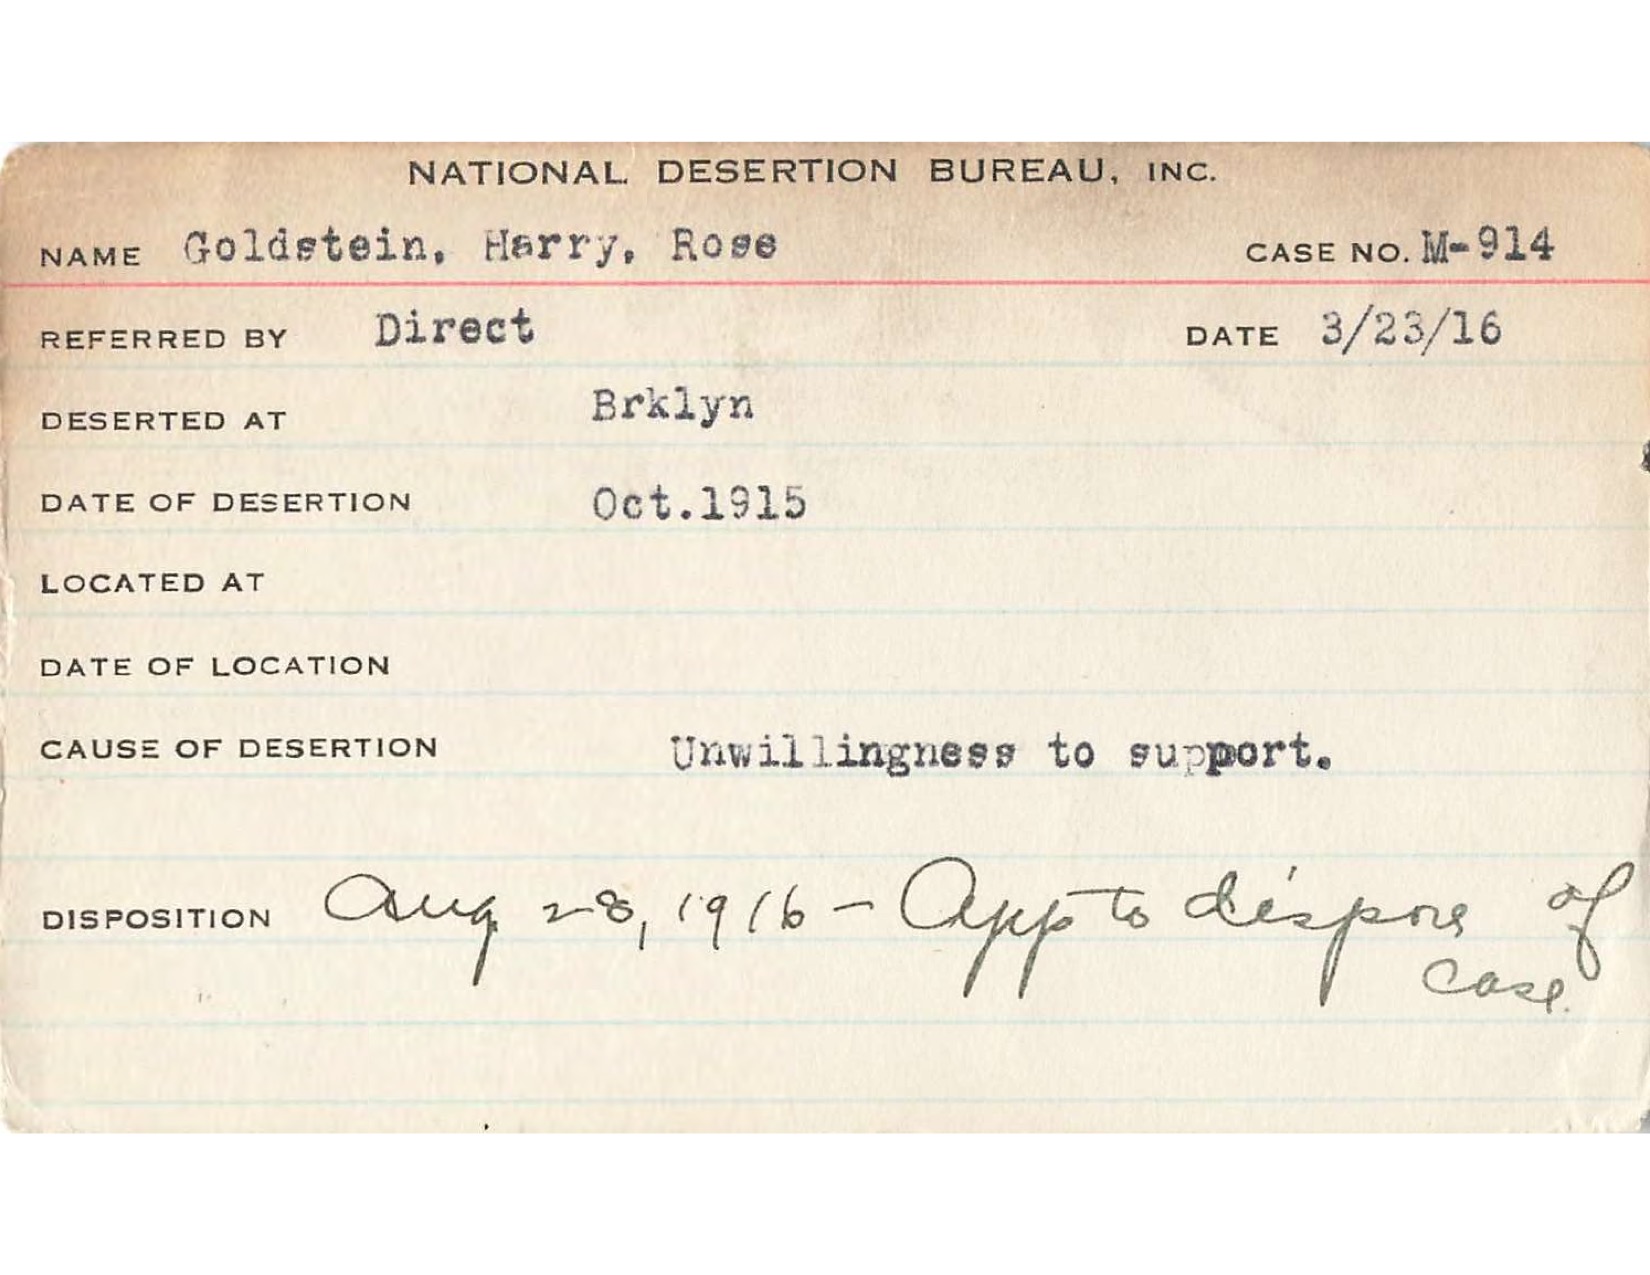 NATIONAL DESERTION BUREAU, INC.
NAME Goldstein, Harry, Rose CASE NO. M-914
REFERRED BY Direct DATE 3/23/16
DESERTED AT Brklyn
DATE OF DESERTION Oct.1915
LOCATED AT
DATE OF LOCATION
CAUSE OF DESERTION Unwillingness to support.
DISPOSITION Aug 28, 1916 - App to dispose of
case.